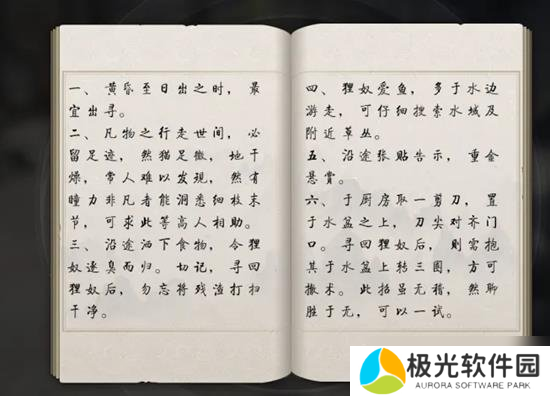 一、黄昏至日出之时，最
宜出寻。
二、凡物之行走世间，必
留足迹，然猫足微，地干
燥，常人难以发现，然有
瞳力非凡者能洞悉细枝末
节，可求此等高人相助。
三、沿途洒下食物，令狸
奴逐臭而归。切记，寻回
狸奴后，勿忘将残渣打扫
干净。
四、狸奴爱鱼，多于水边
游走，可仔细搜索水域及
附近草丛。
五、沿途张贴告示，重金
悬赏。
六、于厨房取一剪刀，置
于水盆之上，刀尖对齐门
口。寻回狸奴后，则需抱
其于水盆上转三圈，方可
撤术。此招虽无稽，然聊
胜于无，可以一试。
极光软件园
AURORA SOFTWARE PARK